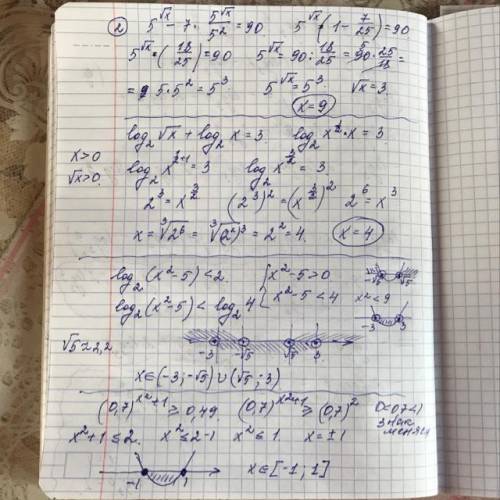 ② 5^√x − 7 · 5^√x/5² = 90   5^√x · (1 − 7/25) = 90
5^√x · (18/25) = 90   5^√x = 90 : 18/25 = 90 · 25/18 =
= 5 · 5² = 5³   5^√x = 5³   √x = 3
x = 9
log₂ √x + log₂ x = 3.   log₂ x^(1/2) · x = 3
x > 0   log₂ x^(1/2+1) = 3   log₂ x^(3/2) = 3
√x > 0   2³ = x^(3/2)   (2³)² = (x^(3/2))²   2⁶ = x³
x = ∛2⁶ = ∛(2²)³ = 2² = 4.   x = 4
log₂ (x² − 5) < 2   { x² − 5 > 0   −√5 √5
log₂ (x² − 5) < log₂ 4 { x² − 5 < 4   x² < 9   −3 3
√5 ≈ 2,2   −3 −√5 √5 3
x ∈ (−3; −√5) ∪ (√5; 3)
(0,7)^(x²+1) ≥ 0,49.   (0,7)^(x²+1) ≥ (0,7)²   0<0,7<1
знак
x² + 1 ≤ 2.   x² ≤ 2 − 1   x² ≤ 1.   x = ± 1   меняем
−1 1   x ∈ [−1; 1]